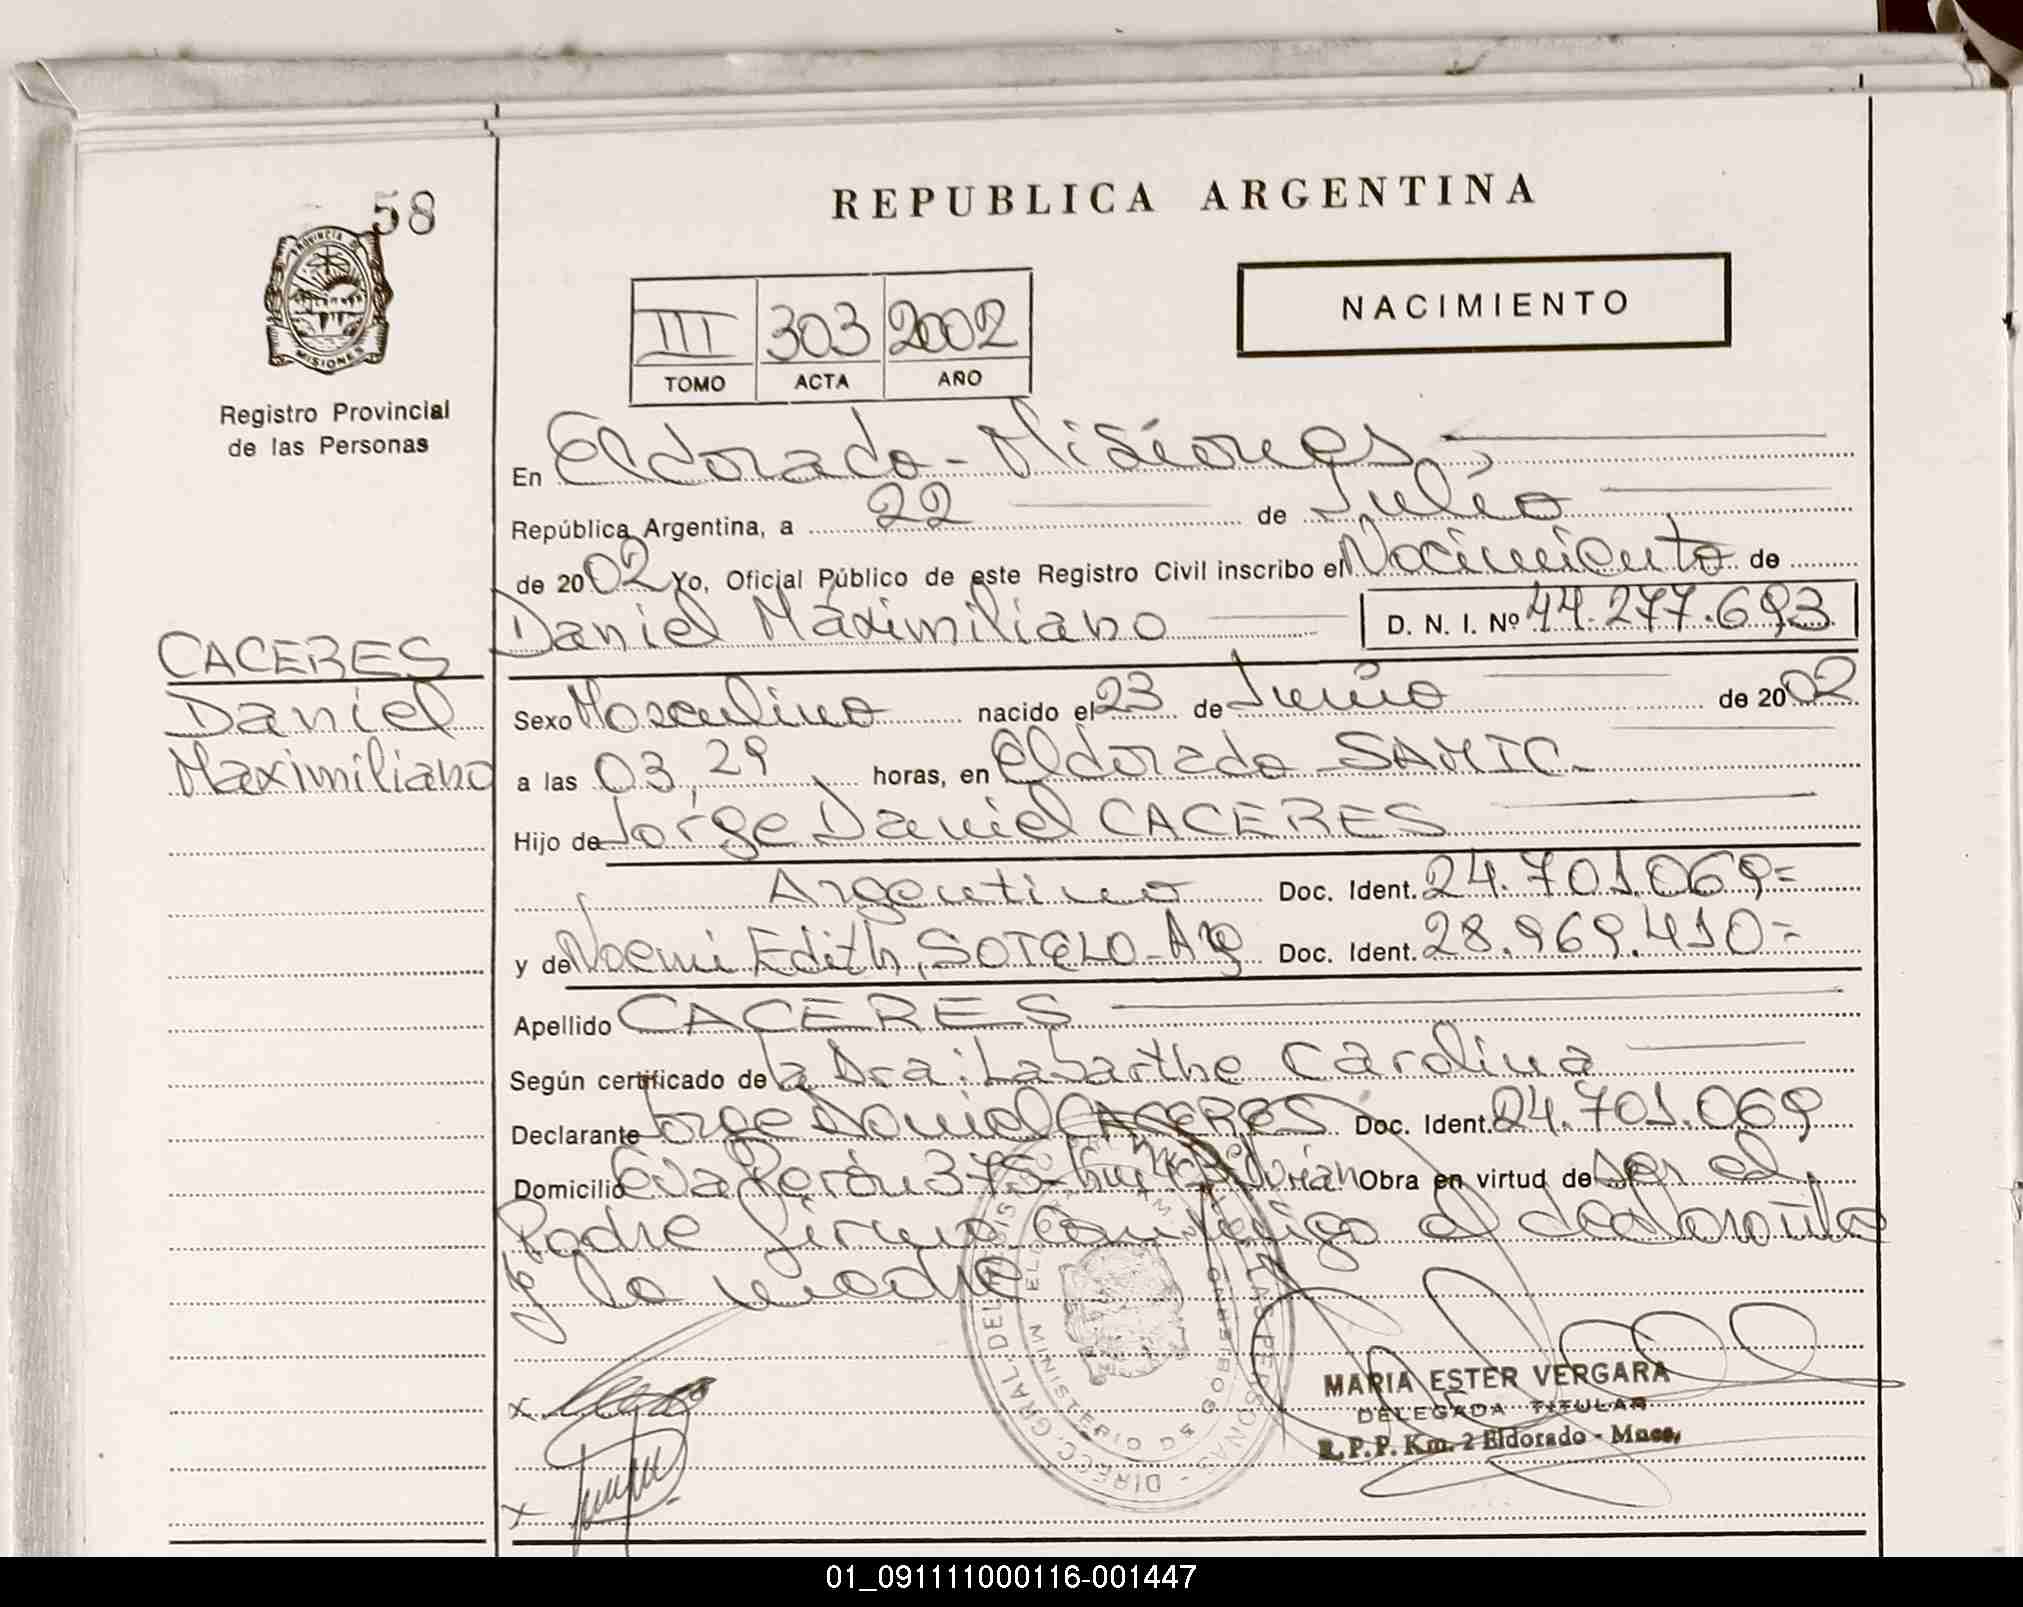 58
PROVINCIA DE
MISIONES
Registro Provincial
de las Personas
REPUBLICA ARGENTINA
NACIMIENTO
III 303 2002
TOMO ACTA AÑO
En Eldorado - Misiones
República Argentina, a 22 de Julio
de 2002 Yo, Oficial Público de este Registro Civil inscribo el Nacimiento de
Daniel Maximiliano D. N. I. Nº 44.277.693
CACERES
Daniel
Maximiliano
Sexo Masculino nacido el 23 de Junio de 2002
a las 03,29 horas, en Eldorado - SAMIC -
Hijo de Jorge Daniel CACERES
Argentino Doc. Ident. 24.701.069=
y de Noemi Edith, SOTELO - Arg Doc. Ident. 28.969.410=
Apellido CACERES
Según certificado de la Dra: Labarthe Carolina
Declarante Jorge Daniel CACERES Doc. Ident. 24.701.069
Domicilio Eva Perón 375 - Obra en virtud de ser el
Padre firma conmigo el declarante
y la madre
MARIA ESTER VERGARA
DELEGADA TITULAR
R.P.P. Km. 2 Eldorado - Mnes.
x
x
01_091111000116-001447